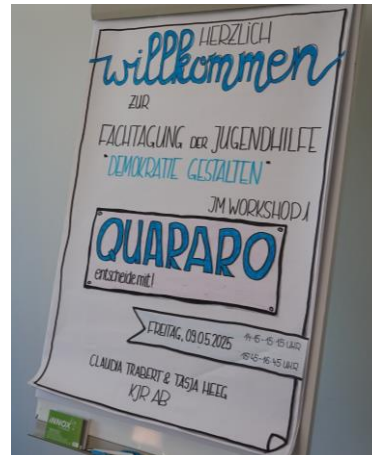 HERZLICH
willkommen
ZUR
FACHTAGUNG DER JUGENDHILFE
"DEMOKRATIE GESTALTEN"
IM WORKSHOP 1
QUARARO
entscheide mit!
FREITAG, 09.05.2025
14:15-15:15 UHR
15:45-16:45 UHR
CLAUDIA TRABERT & TASJA HEEG
KJR AB